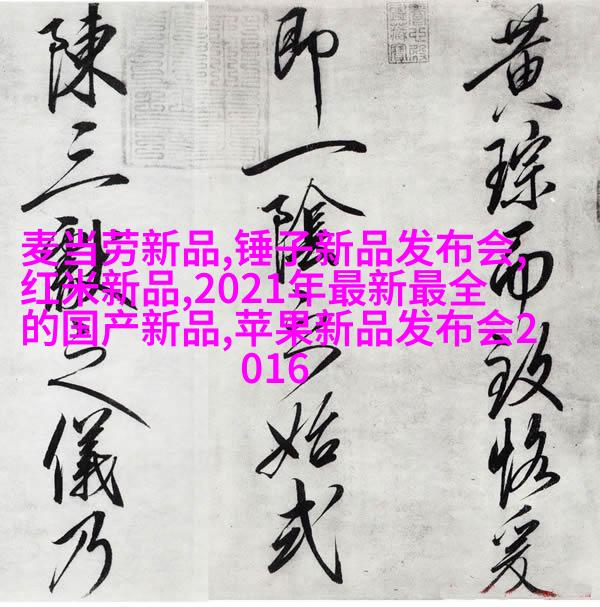 黄琮而致恪爰
即一陰之始式
陳三獻之儀乃
麦当劳新品,锤子新品发布会,
红米新品,2021年最新最全
的国产新品,苹果新品发布会2
016